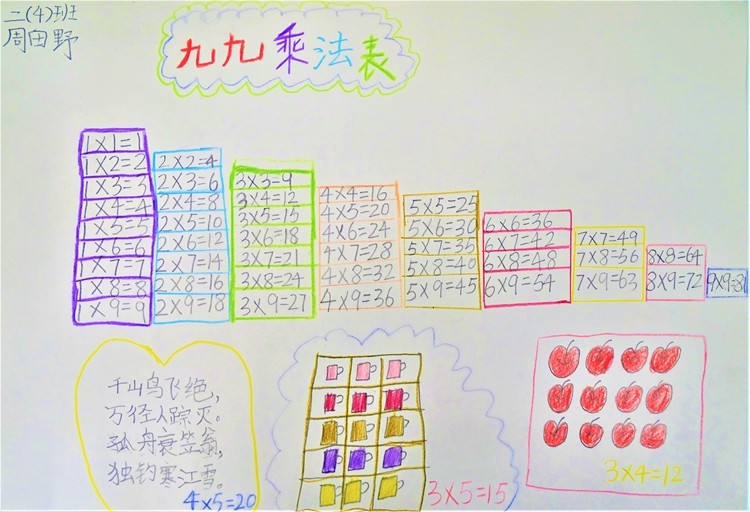 二(4)班
周田野
九九乘法表
1×1=1
1×2=2
1×3=3
1×4=4
1×5=5
1×6=6
1×7=7
1×8=8
1×9=9
2×2=4
2×3=6
2×4=8
2×5=10
2×6=12
2×7=14
2×8=16
2×9=18
3×3=9
3×4=12
3×5=15
3×6=18
3×7=21
3×8=24
3×9=27
4×4=16
4×5=20
4×6=24
4×7=28
4×8=32
4×9=36
5×5=25
5×6=30
5×7=35
5×8=40
5×9=45
6×6=36
6×7=42
6×8=48
6×9=54
7×7=49
7×8=56
7×9=63
8×8=64
8×9=72
9×9=81
千山鸟飞绝,
万径人踪灭。
孤舟衰笠翁,
独钓寒江雪。
4×5=20
3×5=15
3×4=12